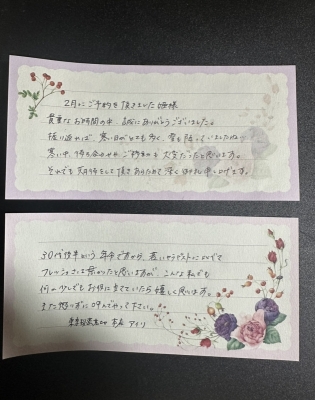 2月にご予約を頂きました皆様
貴重なお時間の中、誠にありがとうございました。
振り返れば、寒い日がとても多く、雪も降っていましたね…
寒い中、待ち合わせやご移動も大変だったと思います。
それでも時間をして頂きありがとう深く御礼申し上げます。
30代後半という年中ですから、若いセラピストに比べて
フレッシュさには欠けたと思いますが、こんな私でも
何か少しでもお役に立てていたら嬉しく思います。
また懲りずに呼んでやって下さい。
東京秘密基地 本店 アイリ